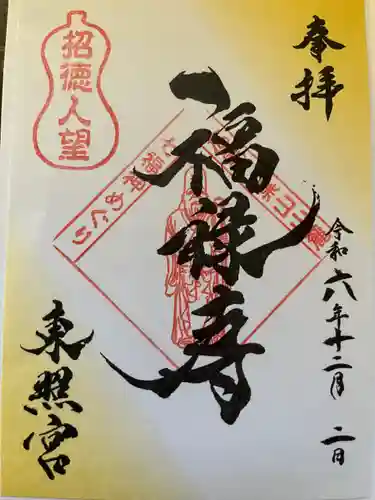 奉拝
招徳人望
福禄寿
福神めぐり
令和六年十二月二日
東照宮